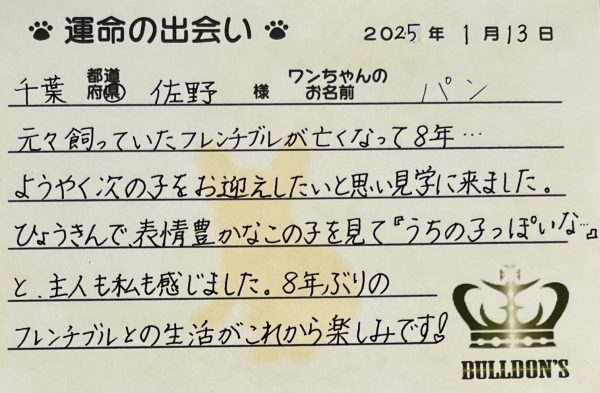 運命の出会い 2025年 1月13日
千葉 都道府県 佐野 様 ワンちゃんのお名前 パン
元々飼っていたフレンチブルが亡くなって8年…
ようやく次の子をお迎えしたいと思い見学に来ました。
ひょうきんで、表情豊かなこの子を見て『うちの子っぽいな…』
と、主人も私も感じました。8年ぶりの
フレンチブルとの生活がこれから楽しみです!
BULLDON'S